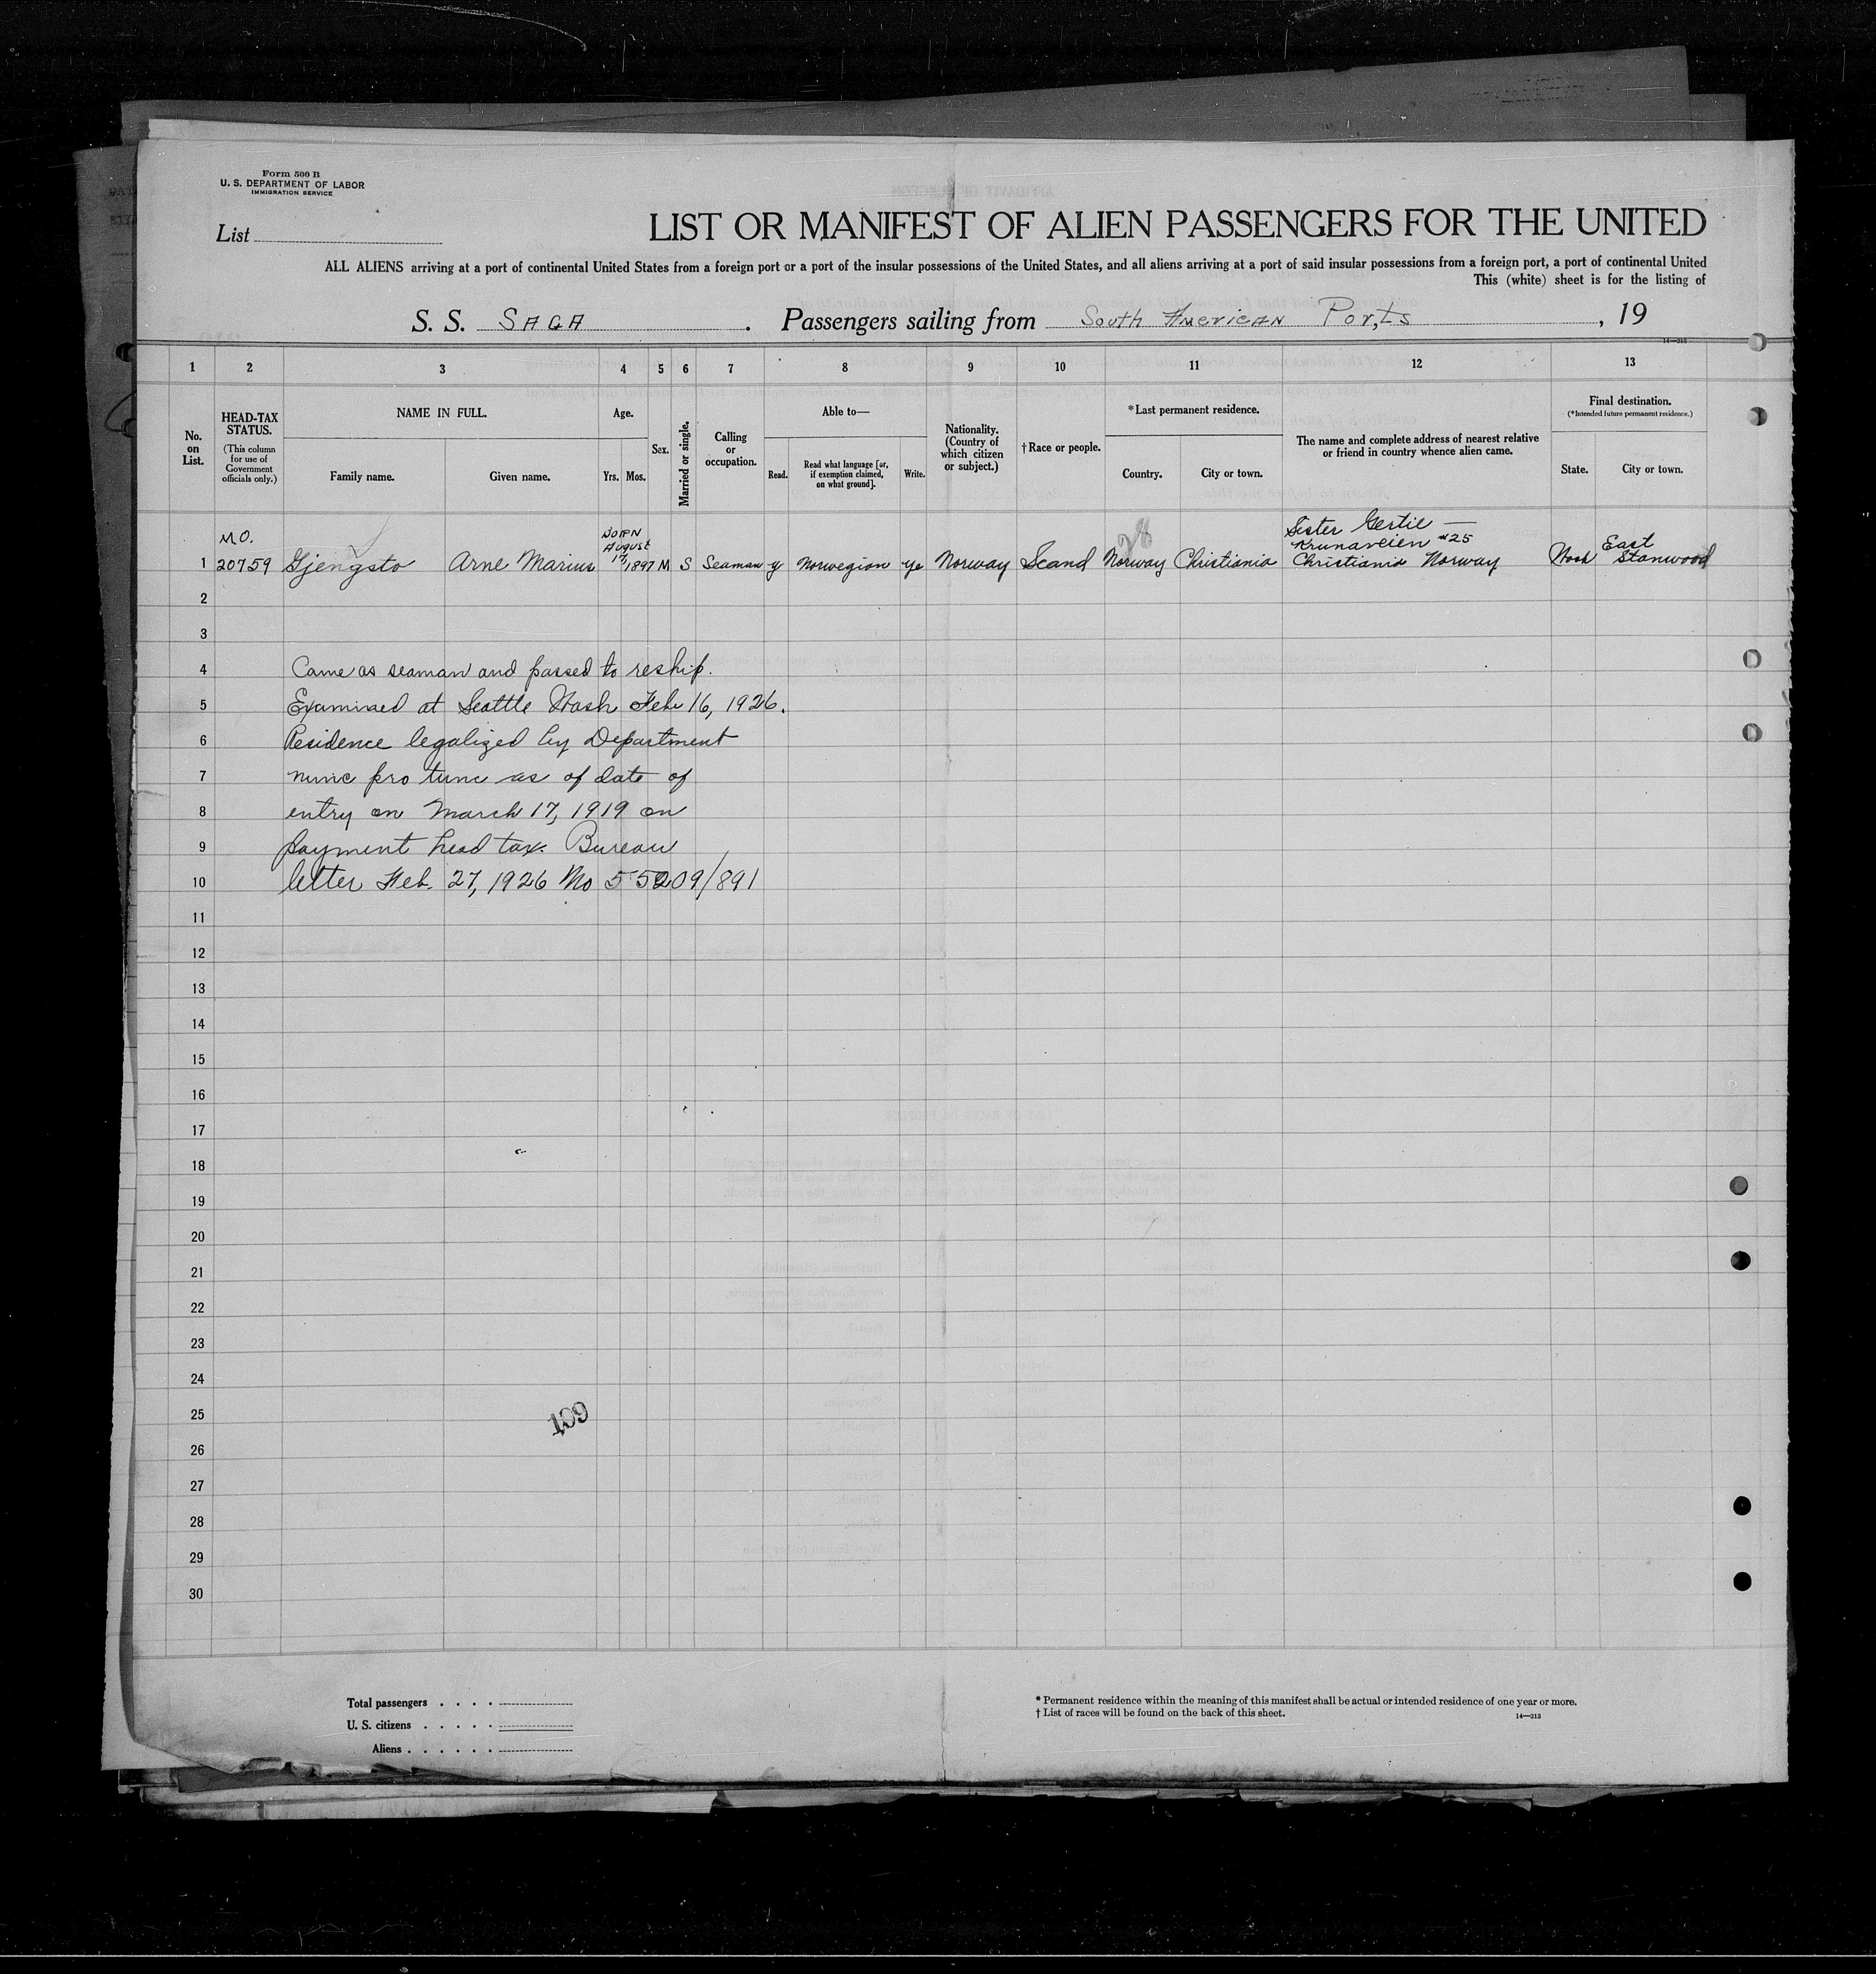 Form 500 B
U. S. DEPARTMENT OF LABOR
IMMIGRATION SERVICE
List
LIST OR MANIFEST OF ALIEN PASSENGERS FOR THE UNITED
ALL ALIENS arriving at a port of continental United States from a foreign port or a port of the insular possessions of the United States, and all aliens arriving at a port of said insular possessions from a foreign port, a port of continental United
This (white) sheet is for the listing of
S. S. SAGA . Passengers sailing from South American Ports , 19
14—213
1 2 3 4 5 6 7 8 9 10 11 12 13
No. on List.
HEAD-TAX STATUS.
(This column for use of Government officials only.)
NAME IN FULL.
Family name. Given name.
Age.
Yrs. Mos.
Sex.
Married or single.
Calling or occupation.
Able to—
Read. Read what language [or, if exemption claimed, on what ground]. Write.
Nationality. (Country of which citizen or subject.)
†Race or people.
*Last permanent residence.
Country. City or town.
The name and complete address of nearest relative or friend in country whence alien came.
Final destination.
(*Intended future permanent residence.)
State. City or town.
1 M.O. 20759 Gjengsto Arne Marius BORN August 17, 1897 M S Seaman y Norwegian ye Norway Scand Norway Christiania Sister Gertie — #25 Christiania Norway Wash East Stanwood
2
3
4 Came as seaman and passed to reship.
5 Examined at Seattle Wash Feb 16, 1926.
6 Residence legalized by Department
7 nunc pro tunc as of date of
8 entry on March 17, 1919 on
9 payment head tax. Bureau
10 letter Feb. 27, 1926 No 55209/891
11
12
13
14
15
16
17
18
19
20
21
22
23
24
25
109
26
27
28
29
30
Total passengers . . . .
U. S. citizens . . . . .
Aliens . . . . . .
* Permanent residence within the meaning of this manifest shall be actual or intended residence of one year or more.
† List of races will be found on the back of this sheet.
14—213